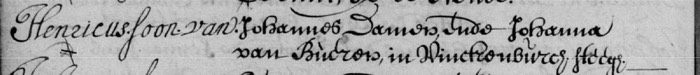 Henricus. soon. van. Johannes Damen, ende Johanna
van Büeren, in Vinckenbürch steegh.